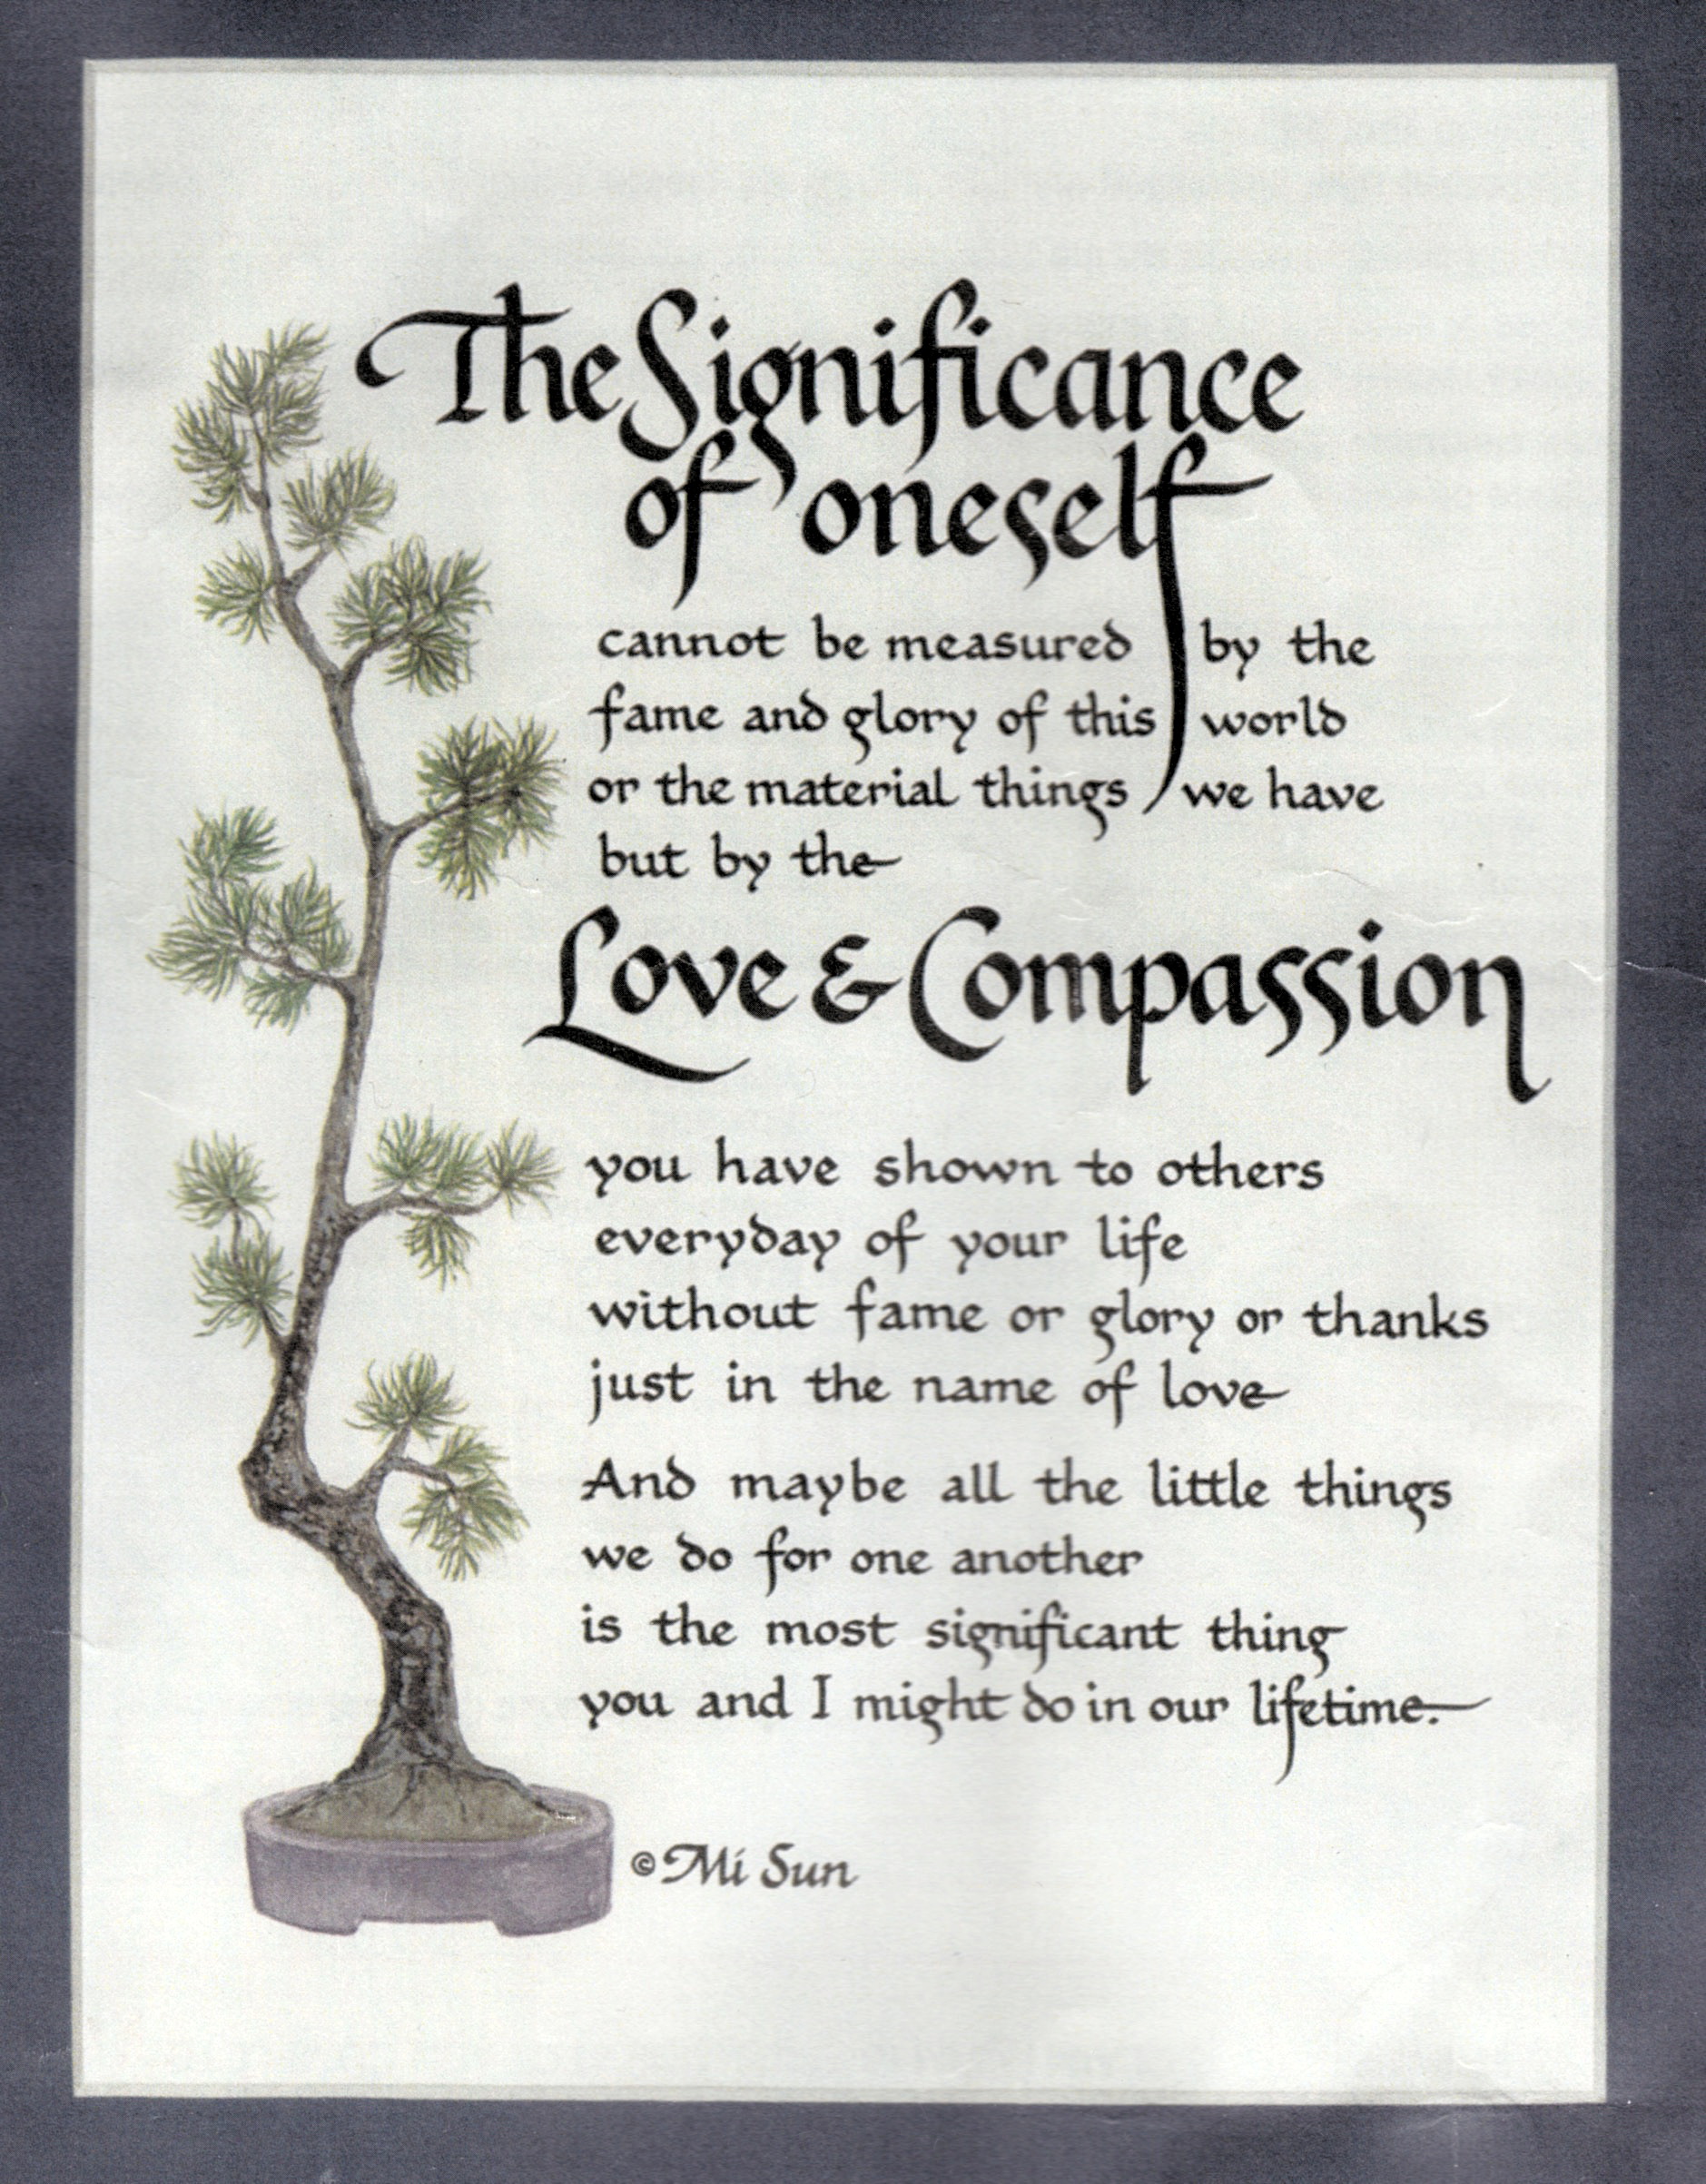 The Significance
of oneself
cannot be measured by the
fame and glory of this world
or the material things we have
but by the
Love & Compassion
you have shown to others
everyday of your life
without fame or glory or thanks
just in the name of love
And maybe all the little things
we do for one another
is the most significant thing
you and I might do in our lifetime.
© Mi Sun